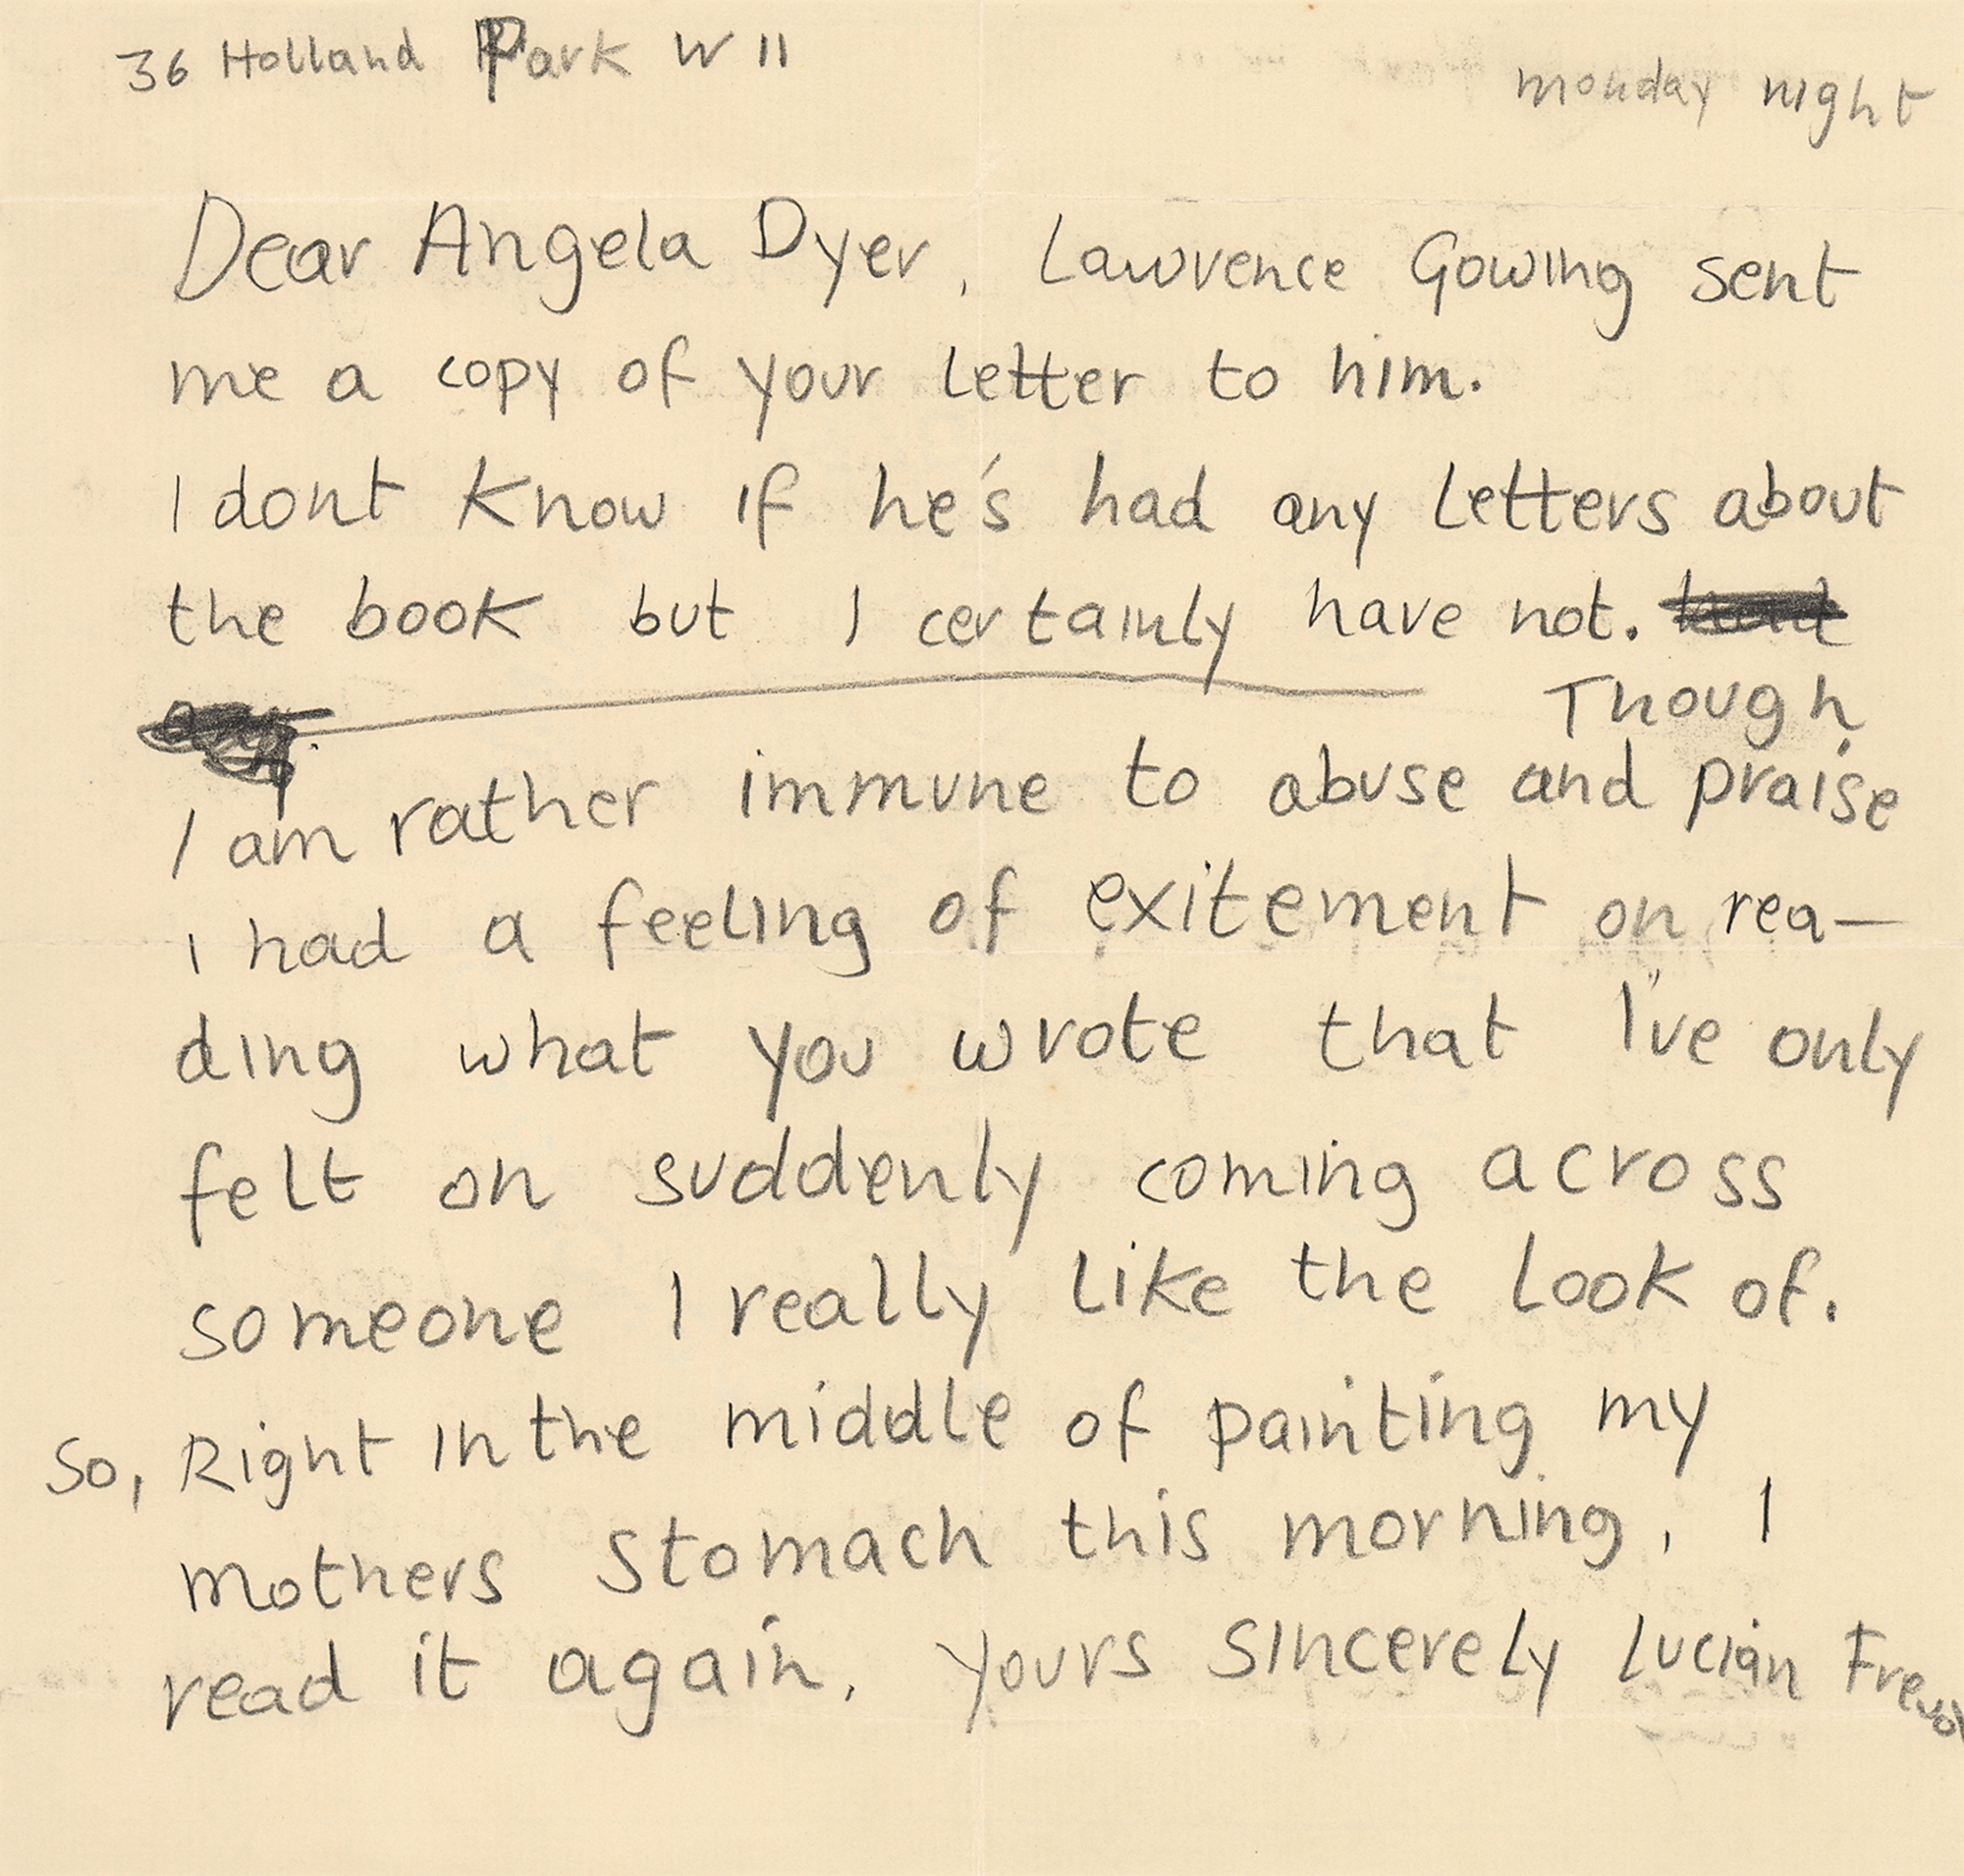 36 Holland Park W 11
monday night
Dear Angela Dyer, Lawrence Gowing sent
me a copy of your letter to him.
I dont know if he's had any letters about
the book but I certainly have not.
Though
I am rather immune to abuse and praise
i had a feeling of exitement on rea—
ding what you wrote that I've only
felt on suddenly coming across
someone I really like the look of.
So, Right in the middle of painting my
mothers stomach this morning, I
read it again, yours sincerely Lucian Freud